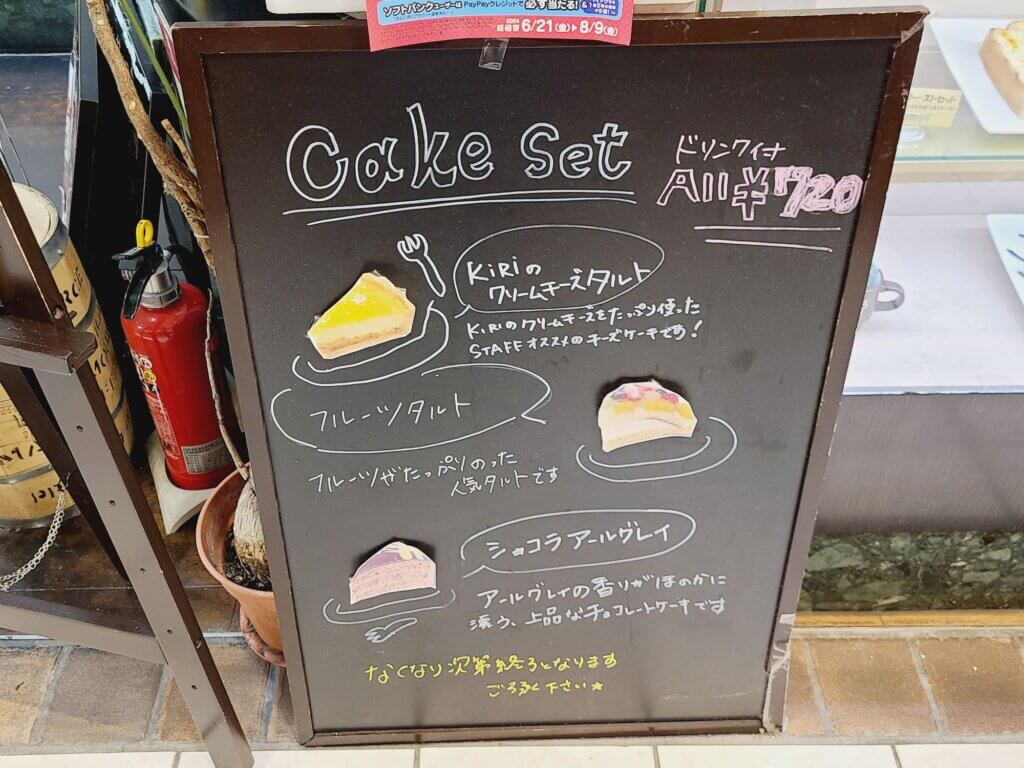 ソフトバンクユーザーは PayPayクレジットで必ず当たる!
2024 6/21(金)▶8/9(金)
Cake Set
ドリンクイナ
All ¥720
KiRiの
クリームチーズタルト
KiRiのクリームチーズをたっぷり使った
STAFFオススメのチーズケーキです!
フルーツタルト
フルーツがたっぷりのった
人気タルトです
ショコラアールグレイ
アールグレイの香りがほのかに
漂う、上品なチョコレートケーキです
なくなり次第終了となります
ご了承下さい☆
トーストセット